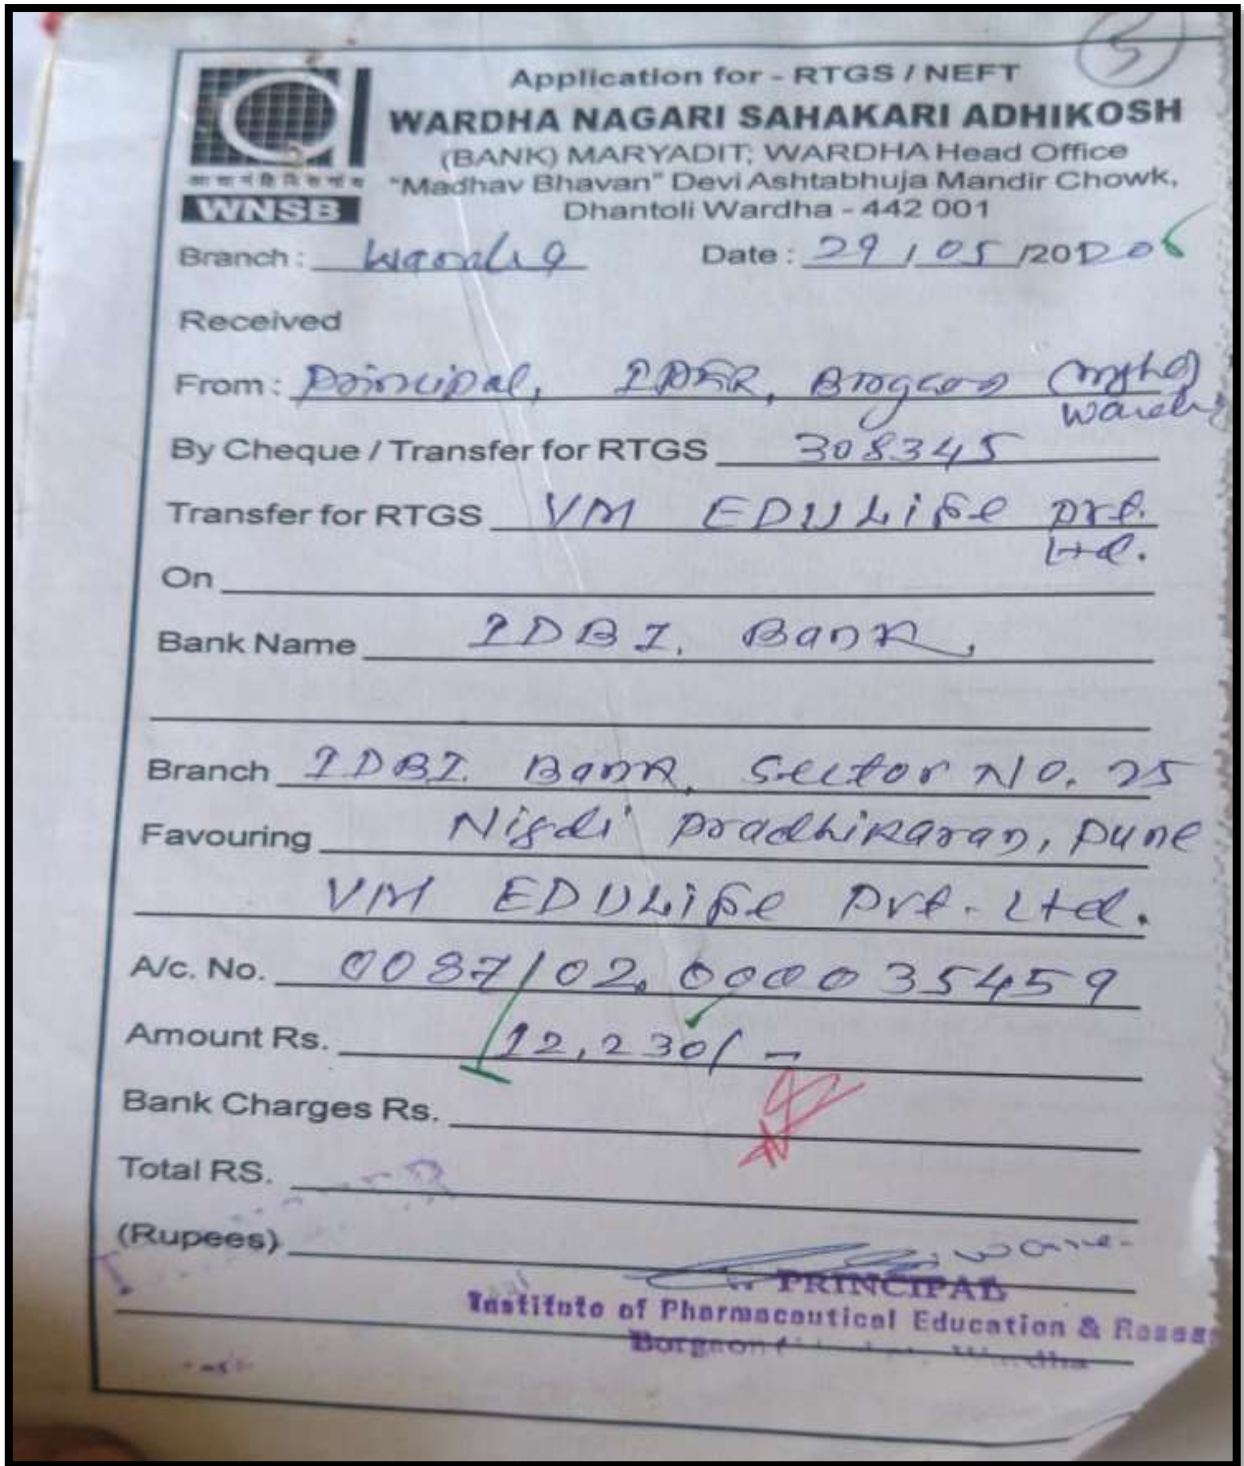 5
Application for - RTGS / NEFT
WARDHA NAGARI SAHAKARI ADHIKOSH
(BANK) MARYADIT, WARDHA Head Office
"Madhav Bhavan" Devi Ashtabhuja Mandir Chowk,
Dhantoli Wardha - 442 001
WNSB
Branch : Wardha Date : 29 / 05 /20
Received
From : Principal, IPER, Borgaon (Meghe)
Wardha
By Cheque / Transfer for RTGS 308345
Transfer for RTGS VM EDULife Pvt.
Ltd.
On
Bank Name IDBI. Bank,
Branch IDBI Bank, Sector No. 25
Favouring Nigdi Pradhikaran, Pune
VM EDULife Pvt. Ltd.
A/c. No. 0087/02,000035459
Amount Rs. 12,230/-
Bank Charges Rs.
Total RS.
(Rupees)
PRINCIPAL
Institute of Pharmaceutical Education &
Borgaon Wardha